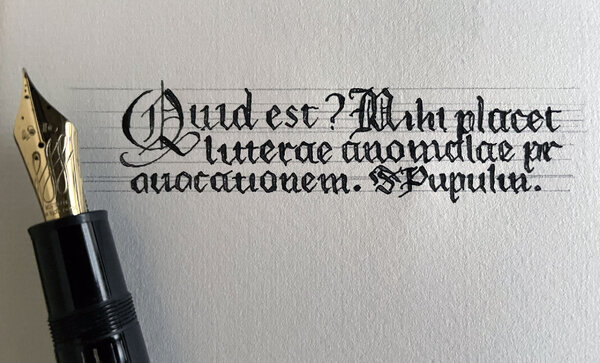 Quid est? Mihi placet
litterae anomalae pr
auocationem. Pupulin.